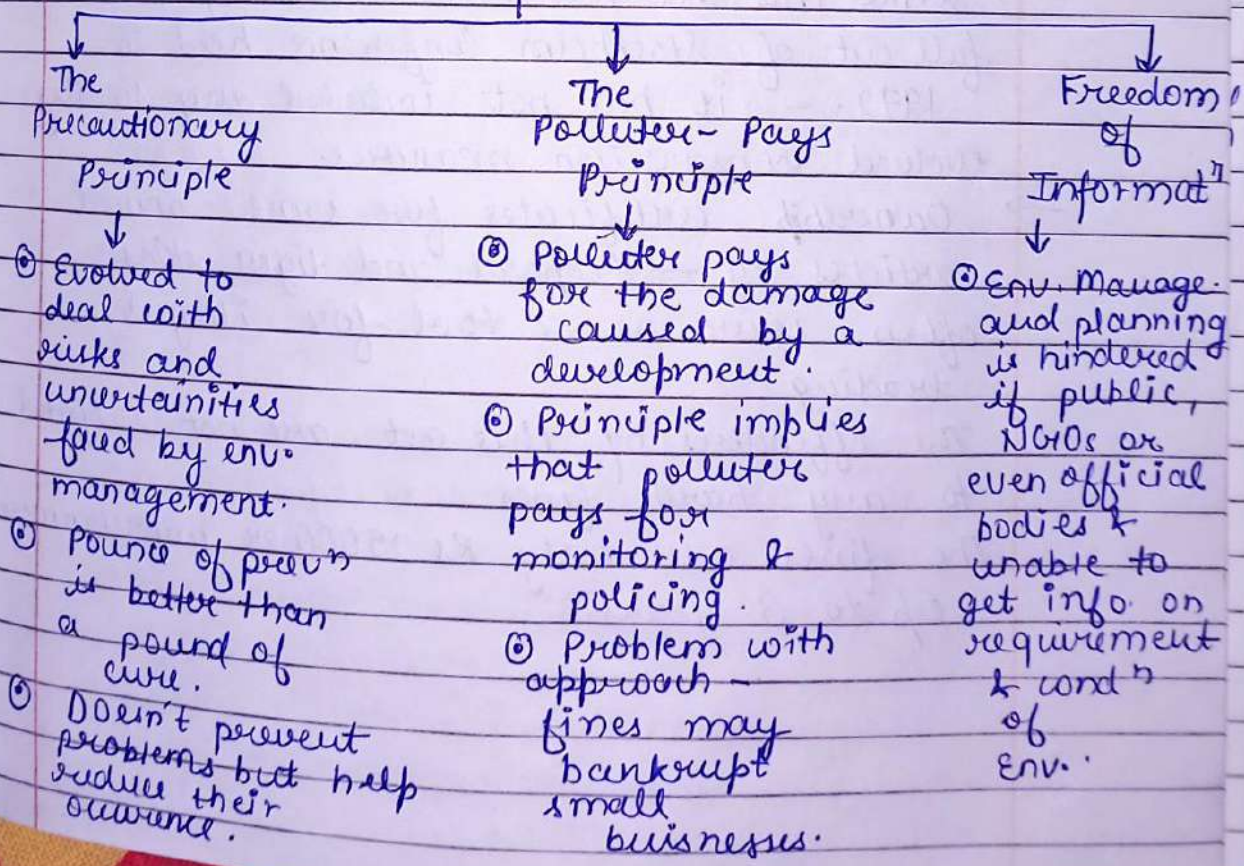 The
Precautionary
Principle
Evolved to
deal with
risks and
uncertainities
faced by env.
management.
Pounce of prevⁿ
is better than
a pound of
cure.
Doesn't prevent
problems but help
reduce their
The
Polluter- Pays
Principle
Polluter pays
for the damage
caused by a
development.
Principle implies
that polluter
pays for
monitoring &
policing.
Problem with
approach -
fines may
bankrupt
small
buisnesses.
Freedom
of
Informatⁿ
Env. Manage.
and planning
is hindered
if public,
NGOs or
even official
bodies &
unable to
get info. on
requirement
& condⁿ
of
Env.